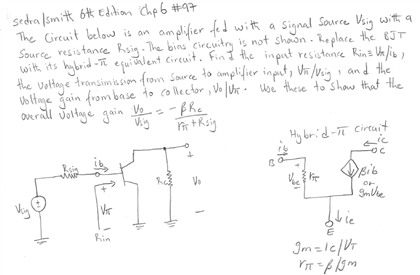 sedra/smith 6th Edition Chp 6 #97
The Circuit below is an amplifier fed with a signal source Vsig with a
source resistance Rsig. The bias circuitry is not shown. Replace the BJT
with its hybrid-π equivalent circuit. Find the input resistance Rin≡Vπ/ib,
the voltage transmission from source to amplifier input, Vπ/Vsig, and the
voltage gain from base to collector, Vo/Vπ. Use these to show that the
overall voltage gain Vo/Vsig = -βRc/(rπ+Rsig)
Hybrid-π circuit
ic
C
ib
B
Rsig
ib
+
Vbe
-
rπ
βib
or
gmVbe
+
Vsig
+
Vπ
-
Rin
Rc
+
Vo
-
ie
E
gm = Ic/VT
rπ = β/gm